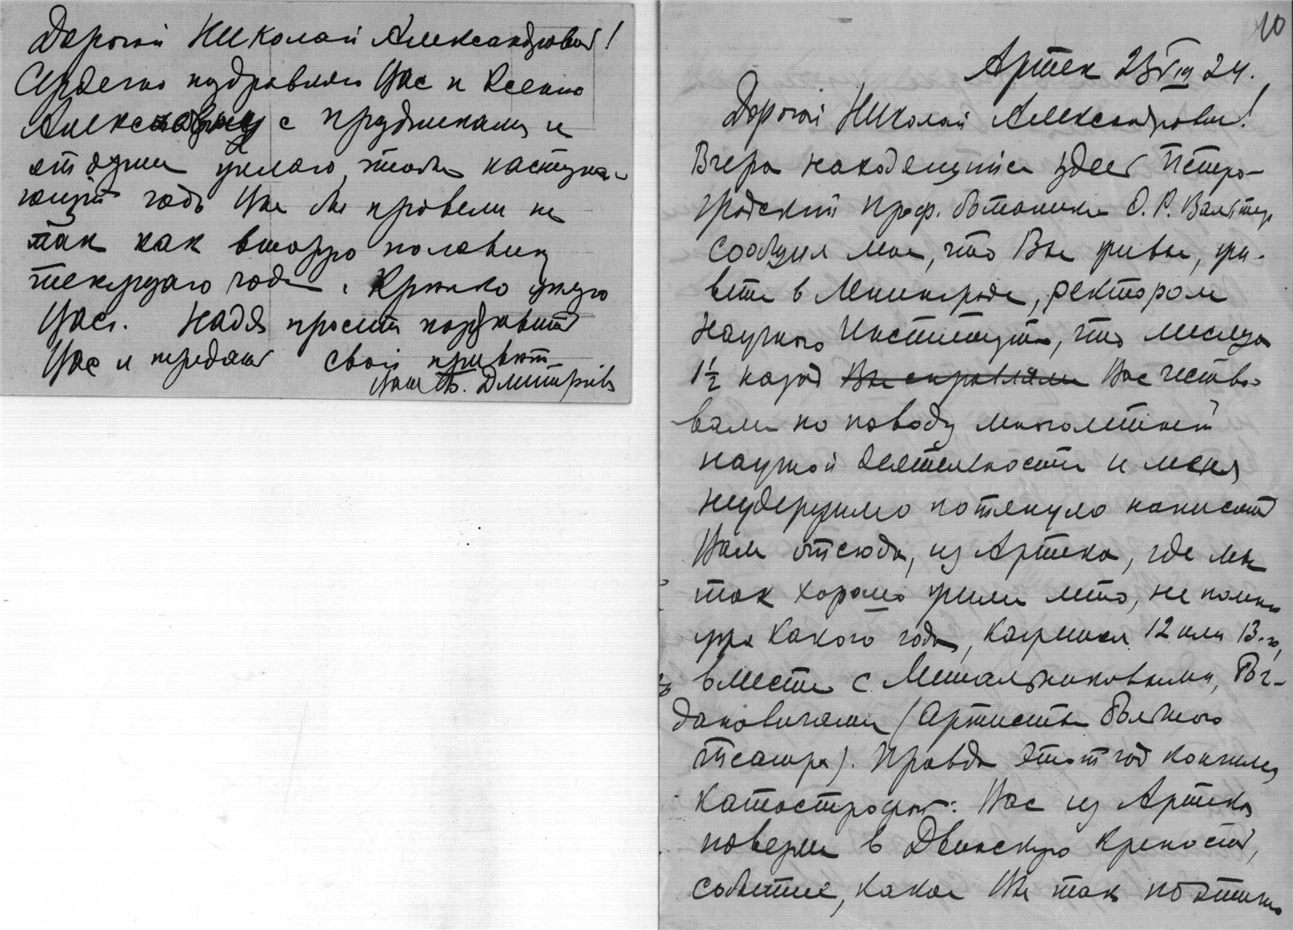 Дорогой Николай Александрович!
Сердечно поздравляю Вас и Ксению
Алекс с праздниками и
от души желаю, чтобы наступа-
ющий годъ Вы бы провели не
так как вторую половину
текущаго года. Крепко жму
Вас. Надя просит поздравить
Вас и передать свой привет
Ваш Вл. Дмитриев
10
Артек 23 VIII 24.
Дорогой Николай Александрович!
Вчера находящийся здесь Петро-
градский проф. ботаники О. Р. Вальтер
сообщил мне, что Вы живы, жи-
вете в Ленинграде, ректором
Научного Института, что месяца
1½ назад Вы справляли Вас чество-
вали по поводу многолетней
научной деятельности и меня
неудержимо потянуло написать
Вам отсюда, из Артека, где мы
так хорошо жили лето, не помню
уже какого года, кажется 12 или 13-го,
вместе с Метальниковыми, Бог-
дановичами (артисты большого
театра). Правда этот год кончился
катастрофой: Вас из Артека
повезли в Двинскую крепость,
событие, какое Вы так поэтично